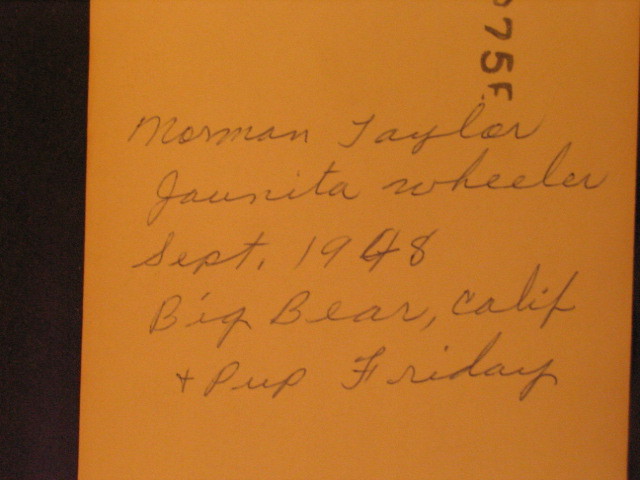 075F
Morman Taylor
Jaunita wheeler
Sept. 1948
Big Bear, Calif
+ Pup Friday